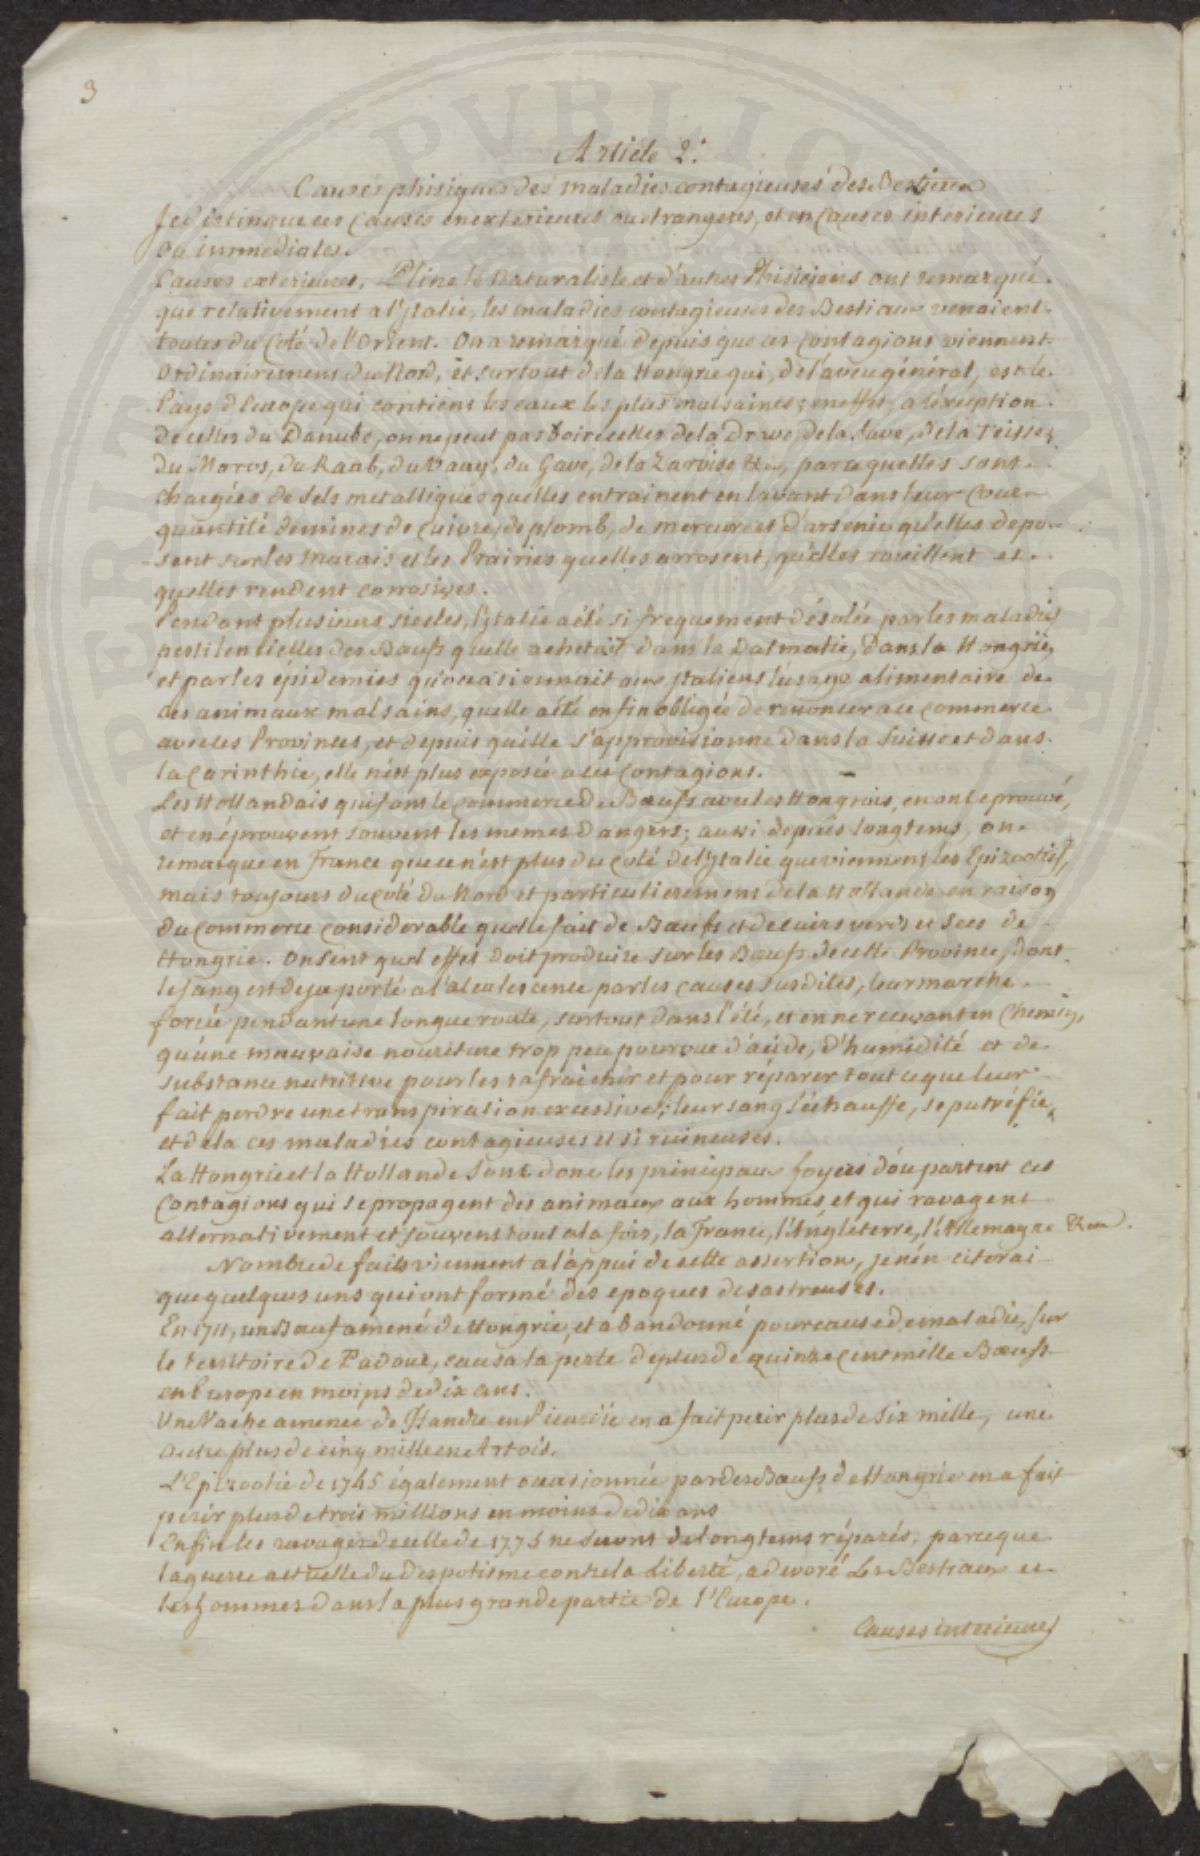 3
Article 2.
Causes phisiques des maladies contagieuses des Bestiaux
Je distingue ces Causes en exterieures ou etrangeres, et en Causes interieures
ou immediates.
Causes exterieures. Pline le Naturaliste et d'autres Phisiciens ont remarqué
que relativement a l'Italie, les maladies contagieuses des Bestiaux venaient
toutes du Coté de l'Orient. On a remarqué depuis que ces contagions viennent
Ordinairement du Nord, et surtout de la Hongrie qui, de l'aveu général, est le
Pays d'Europe qui contient les eaux les plus malsaines; en effet, a l'exception
de celles du Danube, on ne peut pas boire celles de la Drave, de la Save, de la Teisse,
du Maros, du Raab, du Vaag, du Gave, de la Zarvise &a, parce quelles sont
chargées de Sels metalliques quelles entrainent en lavant dans leur Cours
quantité de mines de Cuivre, de plomb, de mercure et d'arsenic qu'elles depo-
-sent sur les Marais et les Prairies quelles arrosent, qu'elles rouillent et
quelles rendent corrosives.
Pendant plusieurs siecles, l'Italie a été si frequement désolée par les maladies
pestilentielles des Bœufs quelle achetait dans la Dalmatie, dans la Hongrie,
et par les épidemies qu'occasionnait aux Italiens l'usage alimentaire de
ces animaux mal sains, quelle a été enfin obligée de renoncer a ce commerce
avec les Provinces, et depuis qu'elle s'approvisionne dans la Suisse et dans
la Carinthie, elle n'est plus exposée a ces Contagions.
Les Hollandais qui font le Commerce de Bœufs avec les Hongrois, en ont eprouvé,
et en éprouvent souvent les memes dangers; aussi depuis longtems, on
remarque en France que ce n'est plus du Coté de l'Italie que viennent les Epizooties,
mais toujours du coté du Nord et particulierement de la Hollande en raison
du Commerce Considerable quelle fait de Bœufs et de cuirs verds et secs de
Hongrie. On sent quel effet doit produire sur les Bœufs de cette Province, dont
le sang est deja porté a l'alcalescence par les causes susdites, leur marche
forcée pendant une longue route, surtout dans l'été, et en ne recevant en Chemin,
qu'une mauvaise nouriture trop peu pourvue d'acide, d'humidité et de
substance nutritive pour les rafraichir et pour réparer tout ce que leur
fait perdre une transpiration excessive; leur sang s'échauffe, se putréfie,
et de la ces maladies contagieuses et si ruineuses.
La Hongrie et la Hollande sont donc les principaux foyers d'ou partent ces
Contagions qui se propagent des animaux aux hommes, et qui ravagent
alternativement et souvent tout a la fois, la France, l'Angleterre, l'Allemagne &a.
Nombre de faits viennent a l'appui de cette assertion, je n'en citerai
que quelques uns qui ont formé des epoques desastreuses.
En 1711, un Bœuf amené de Hongrie, et abandonné pour cause de maladie, sur
le territoire de Padoue, causa la perte de plus de quinze Cent mille Bœufs
en Europe en moins de dix ans.
Une Vache amenée de Flandre en Picardie en a fait perir plus de Six mille, une
autre plus de cinq mille en Artois.
L'Epizootie de 1745 également occasionnée par des Bœufs de Hongrie en a fait
périr plus de trois millions en moins de dix ans
Enfin les ravages de celle de 1775 ne seront de longtems réparés, parceque
la guerre actuelle du despotisme contre la Liberté, a devoré les Bestiaux et
les hommes dans la plus grande partie de l'Europe.
Causes interieures